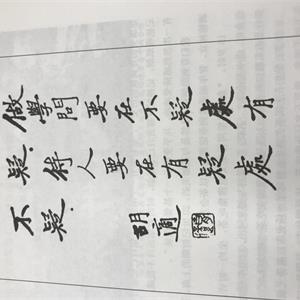 做學問要在不疑處有
疑．待人要在有疑處
不疑．
胡適